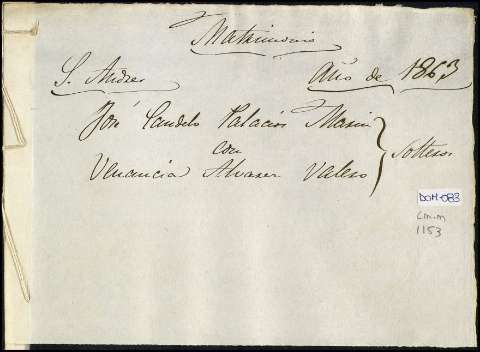 Matrimonio
S. Andres Año de 1863
José Candelo Palacios Marin
con
Venancia Alvarez Valero
Solteros
DOM-083
Cm.m
1153